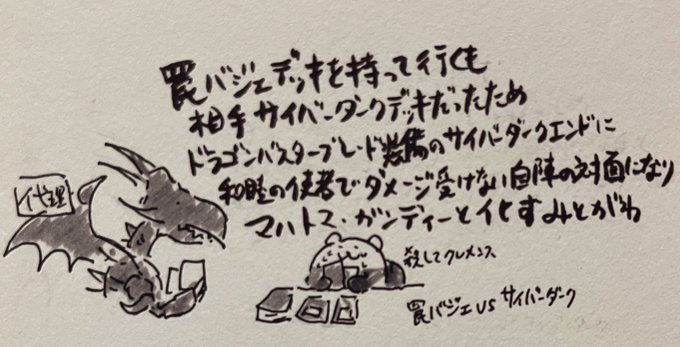 罠バジェデッキを持って行くも
相手サイバーダークデッキだったため
ドラゴンバスターブレード装備のサイバーダークエンドに
和睦の使者でダメージ受けない自陣の対面になり
マハトマ・ガンディーと化すみとがわ
代理
殺してクレメンス
罠バジェVSサイバーダーク